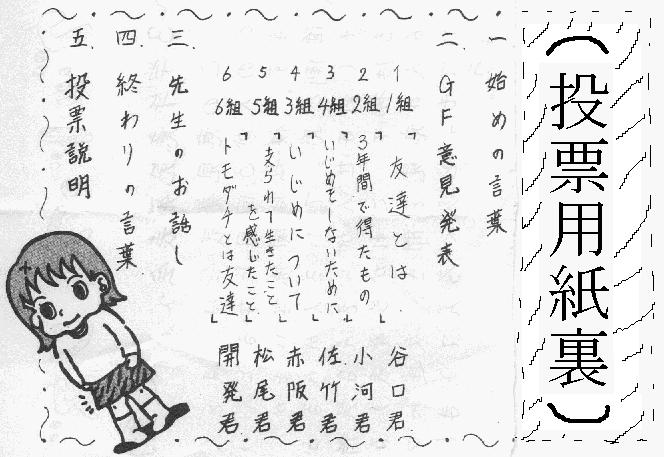 （投票用紙裏）
一、始めの言葉
二、GF意見発表
1 1組「友達とは」谷口君
2 2組「3年間で得たもの」小河君
3 4組「いじめをしないために」佐竹君
4 3組「いじめについて」赤阪君
5 5組「支られて生きたこと
を感じたこと」松尾君
6 6組「トモダチとは友達」開発君
三、先生のお話し
四、終わりの言葉
五、投票説明